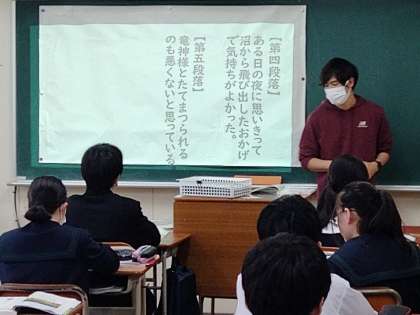 【第四段落】
ある日の夜に思いきって
沼から飛び出したおかげ
で気持ちがよかった。
【第五段落】
竜神様とたてまつられる
のも悪くないと思っている。